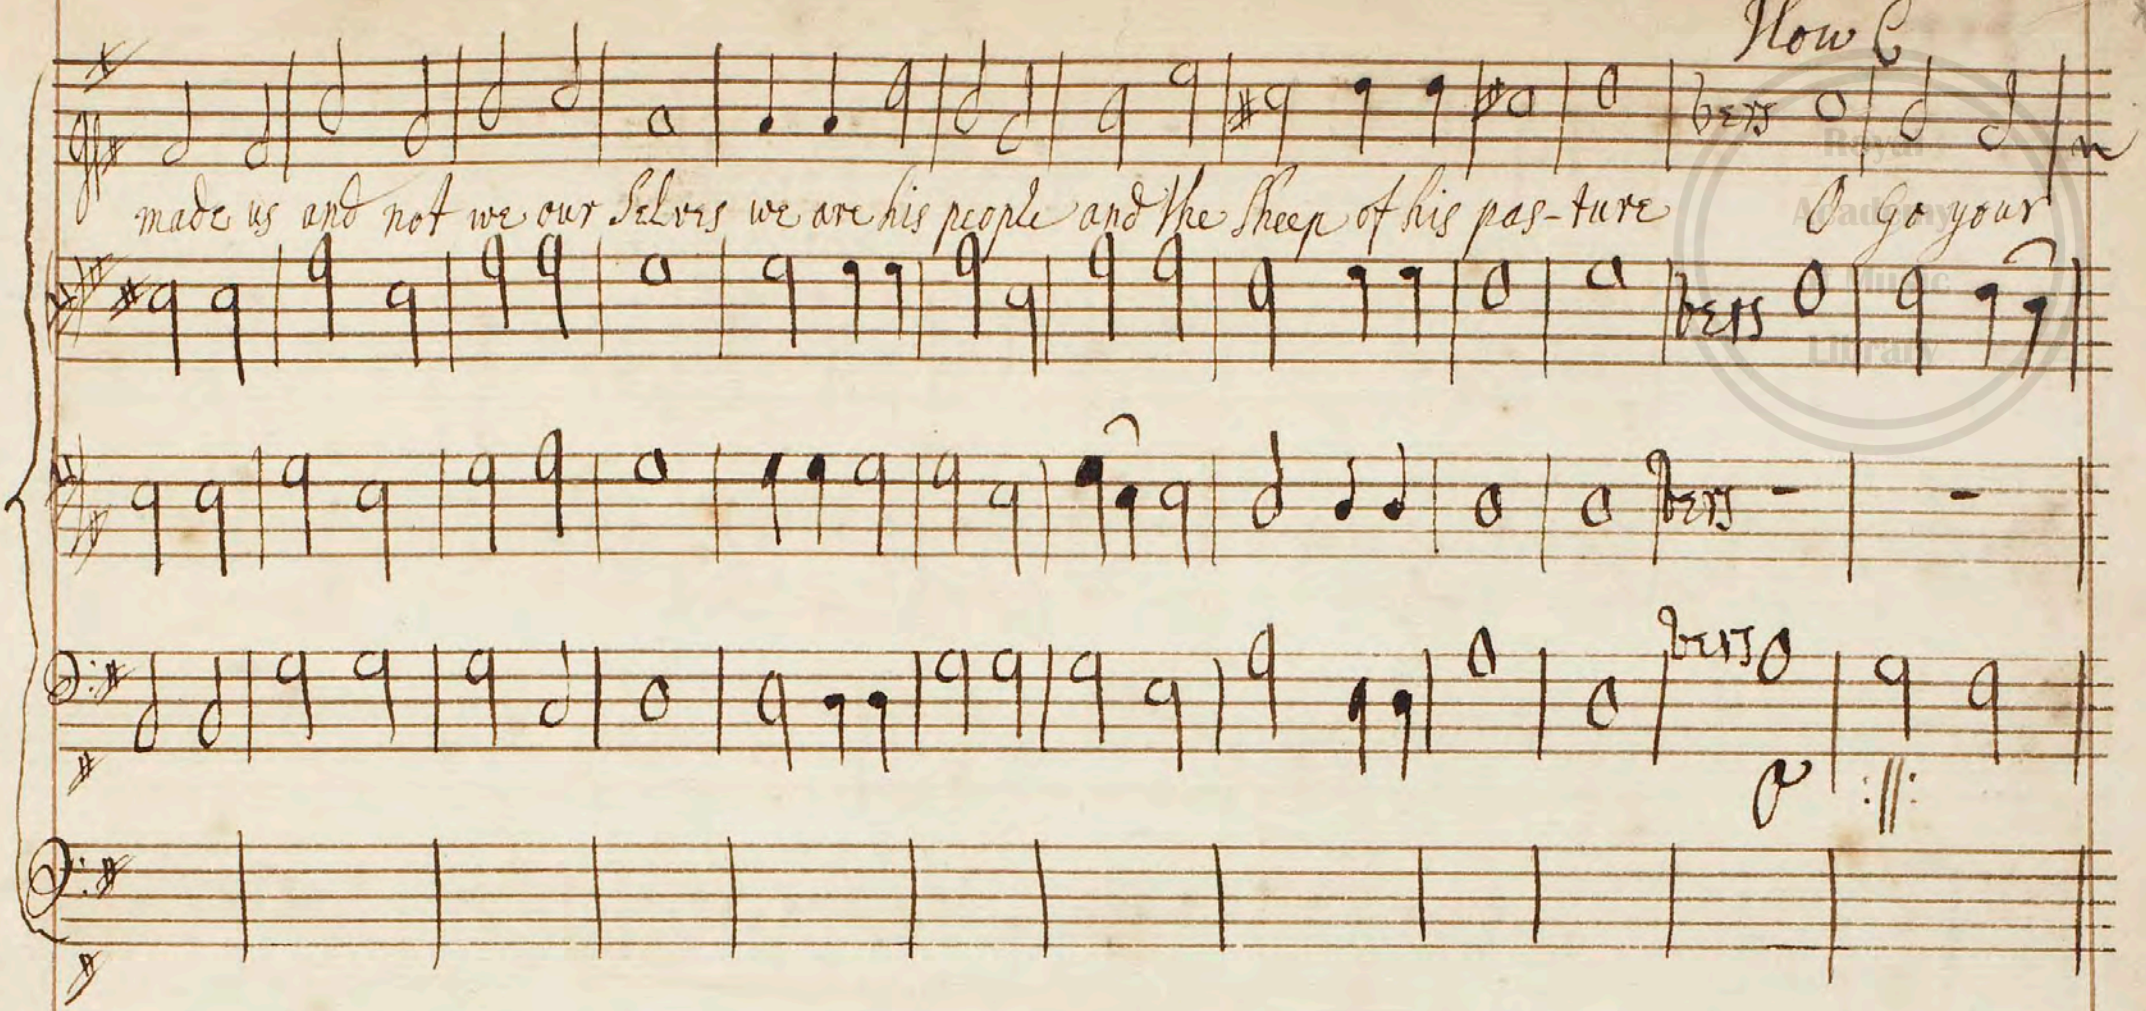 Slow
made us and not we our Selves we are his people and the Sheep of his pas-ture O Go your
vers
vers
vers
vers
O :||:
Royal
Academy
Music
Library